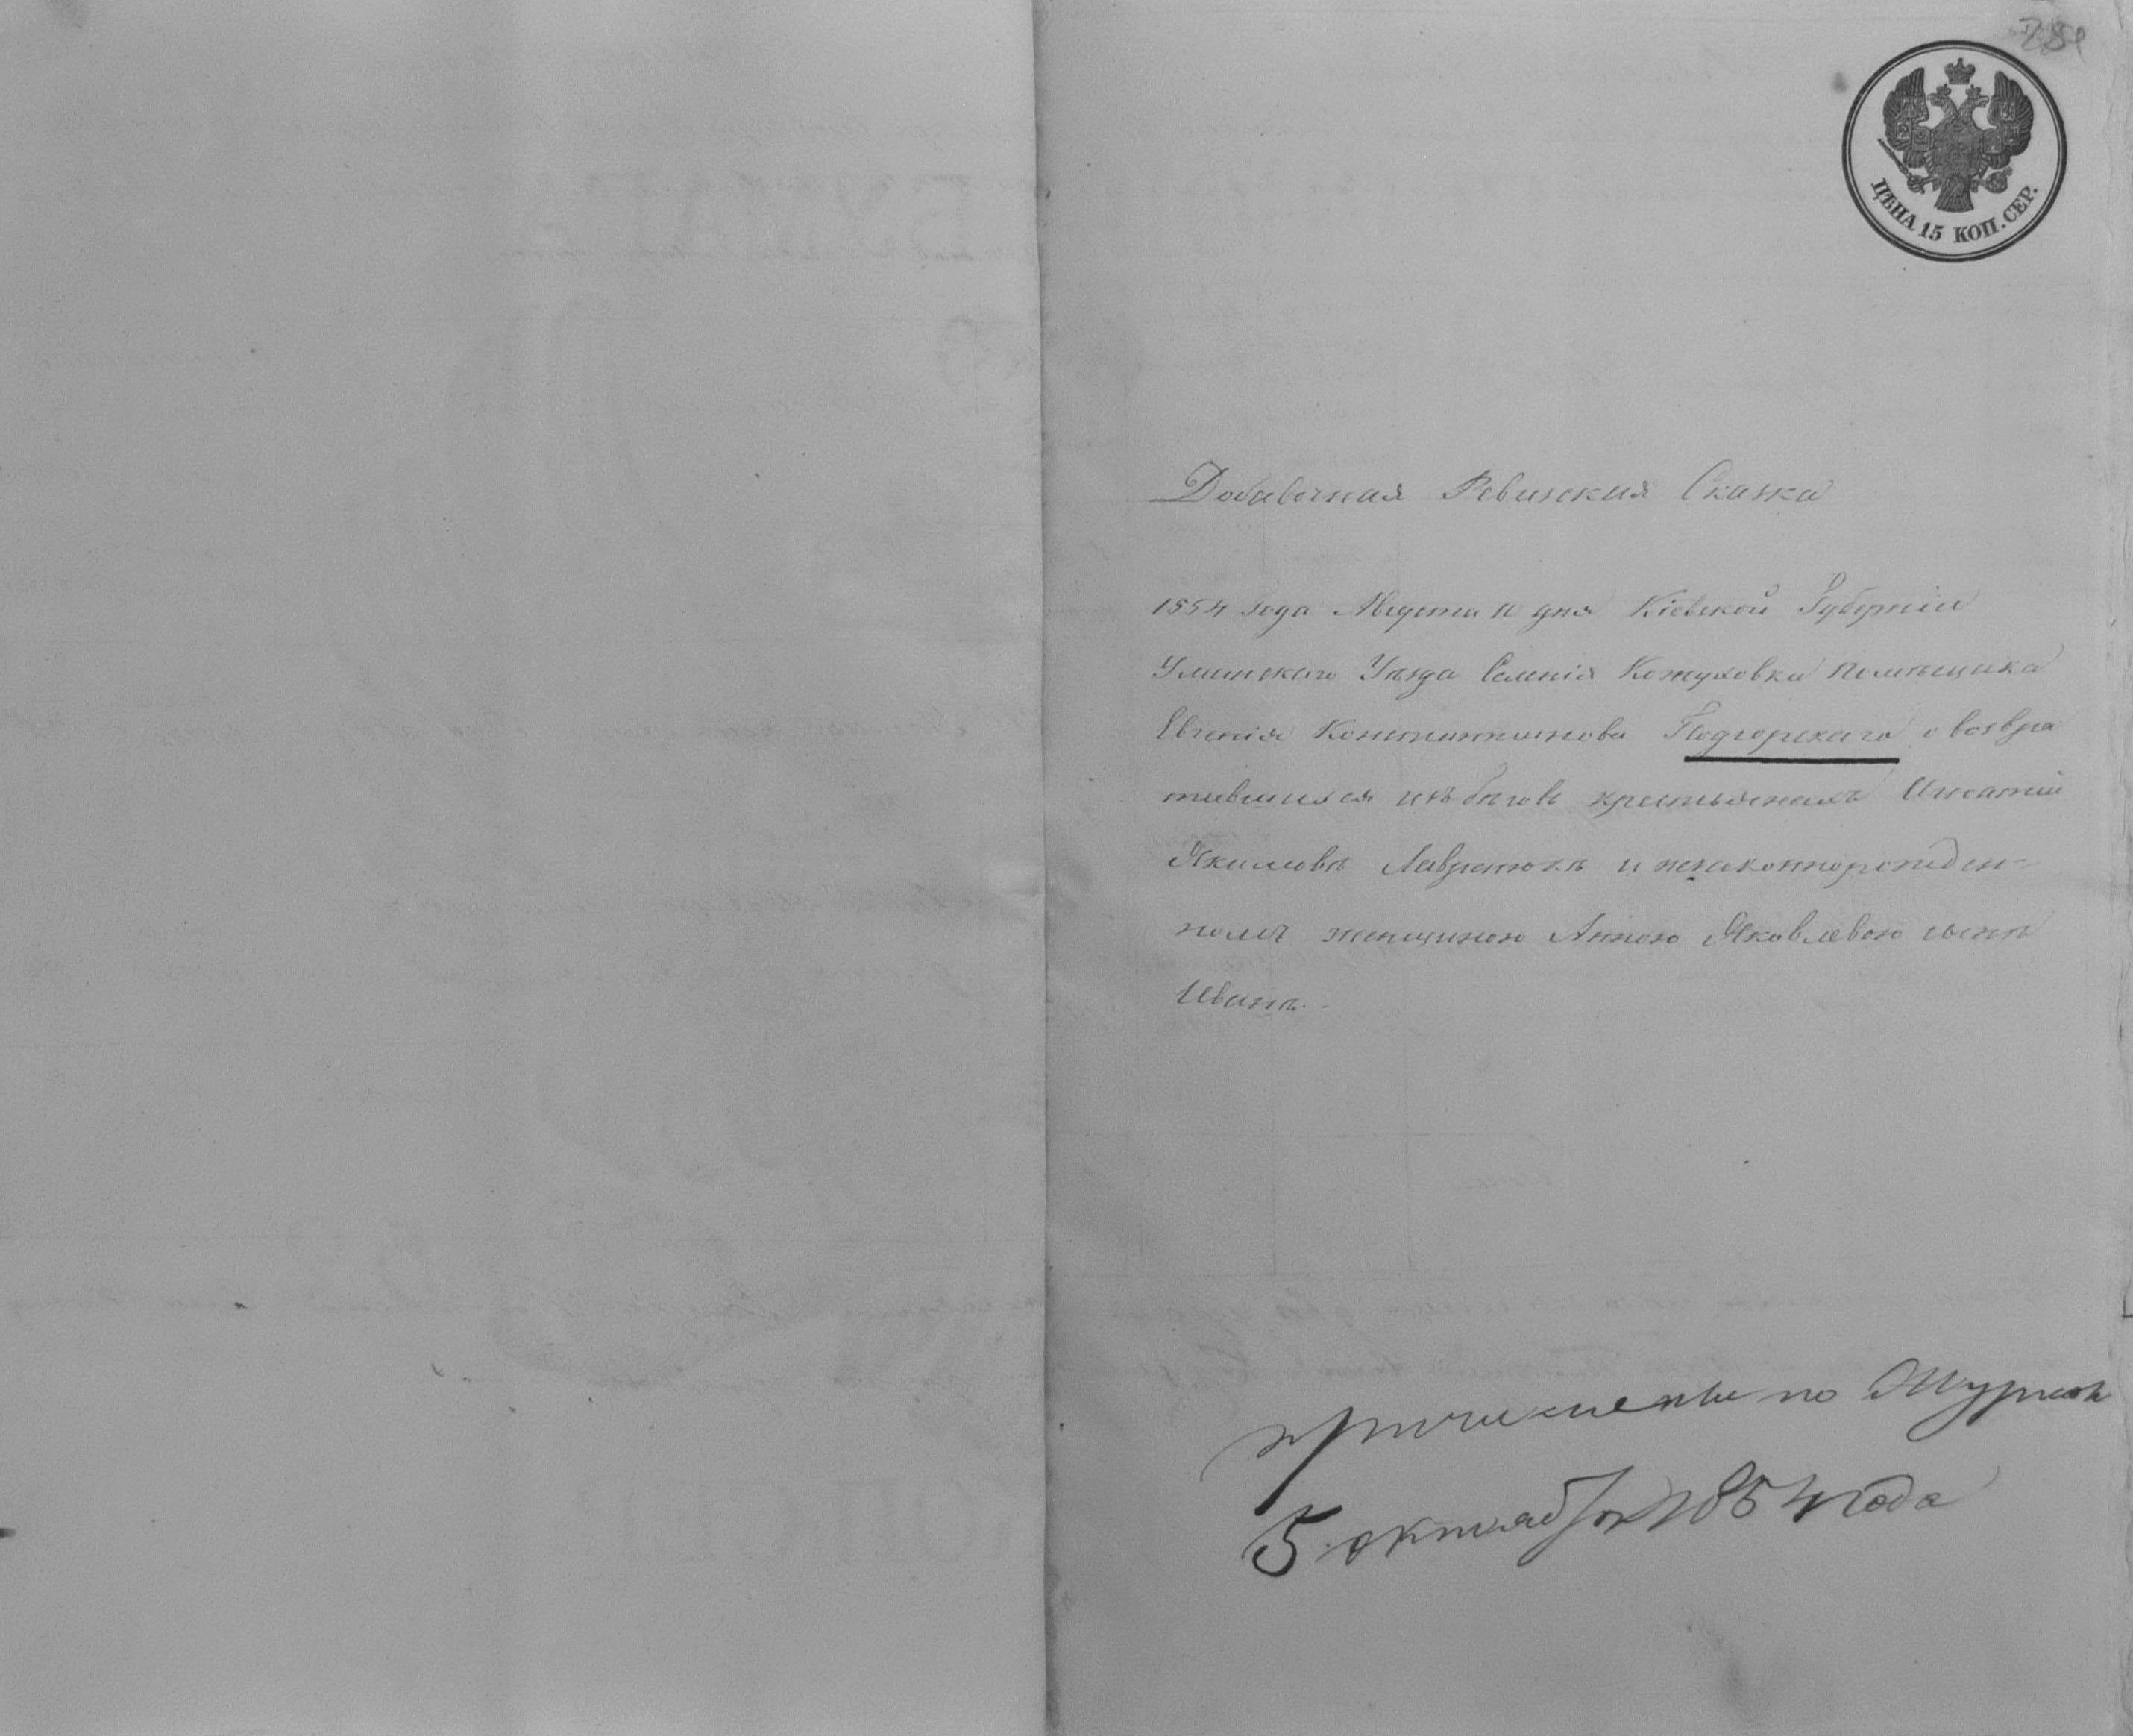 ЦѢНА 15 КОП. СЕР.
Добавочная Ревизская Сказка
1854 года Августа дня Кіевской Губерніи
Уманскаго Уѣзда Селенія Кожуховки помѣщика
Евгенія Константинова Подгорскаго о возвра
тившихся изъ бѣговъ крестьянахъ Игнатіи
Якимовѣ Лавренюкѣ и незаконнорожден-
номъ женщиною Анною Яковлевою сынѣ
Иванѣ.-
причислены по Журналу
5 октября 1854 года